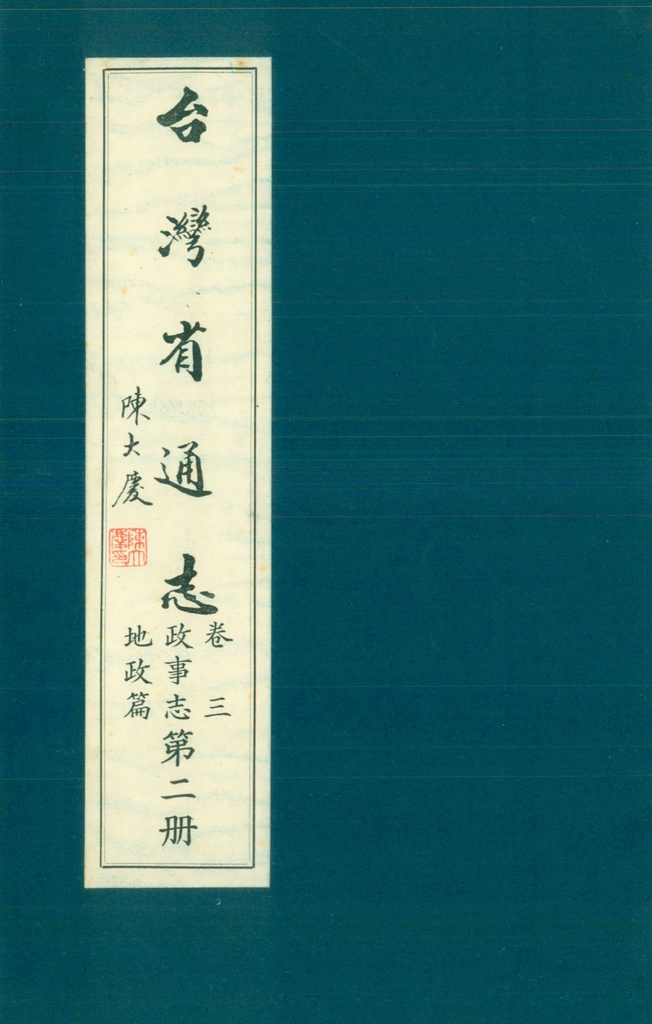 台灣省通志
卷三
政事志
地政篇
第二册
陳大慶